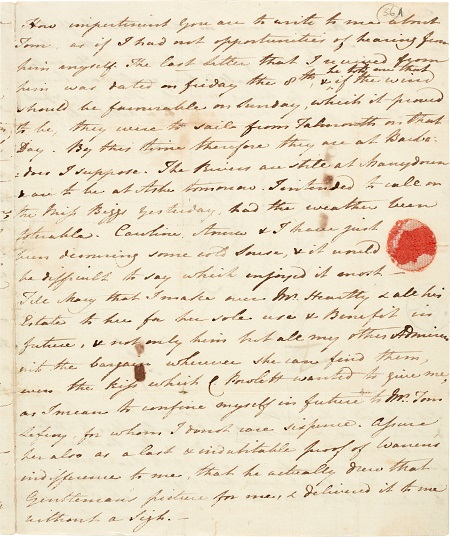 56A
How impertinent you are to write to me about
Tom, as if I had not opportunities of hearing from
him myself. The Last Letter that I received from
him was dated on Friday the 8th, he told me that
& if the wind
should be favourable on Sunday, which it proved
to be, they were to sail from Falmouth on that
Day. By this time therefore they are at Barba-
-does I suppose. The Rivers are still at Manydown
& are to be at Ashe tomorrow. I intended to call on
the Miss Biggs yesterday, had the weather been
tolerable. Caroline, Anna & I have just
been devouring some cold Souse, & it would
be difficult to say which enjoyed it most —
Tell Mary that I make over Mr. Heartley & all his
Estate to her for her sole use & Benefit in
future, & not only him but all my other Admirers
into the bargain wherever she can find them,
even the kiss which C Powlett wanted to give me,
as I mean to confine myself in future to Mr. Tom
Lefroy, for whom I donot care sixpence. Assure
her also as a last & indubitable proof of Warren's
indifference to me, that he actually drew that
Gentleman's picture for me, & delivered it to me
without a Sigh. —